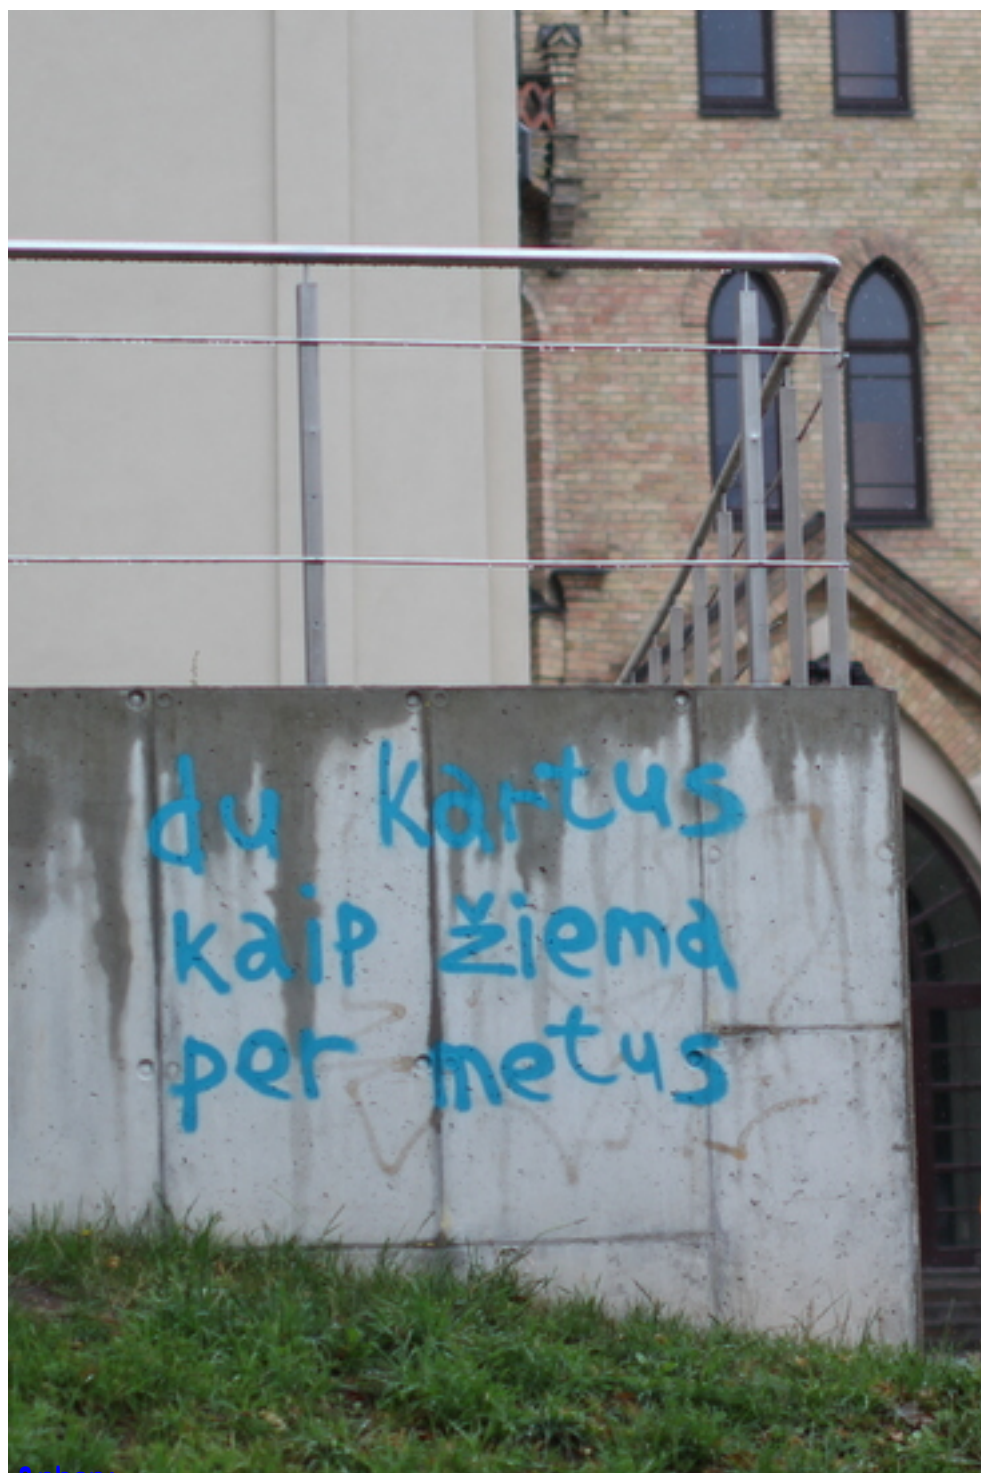 du kartus
kaip žiemą
per metus